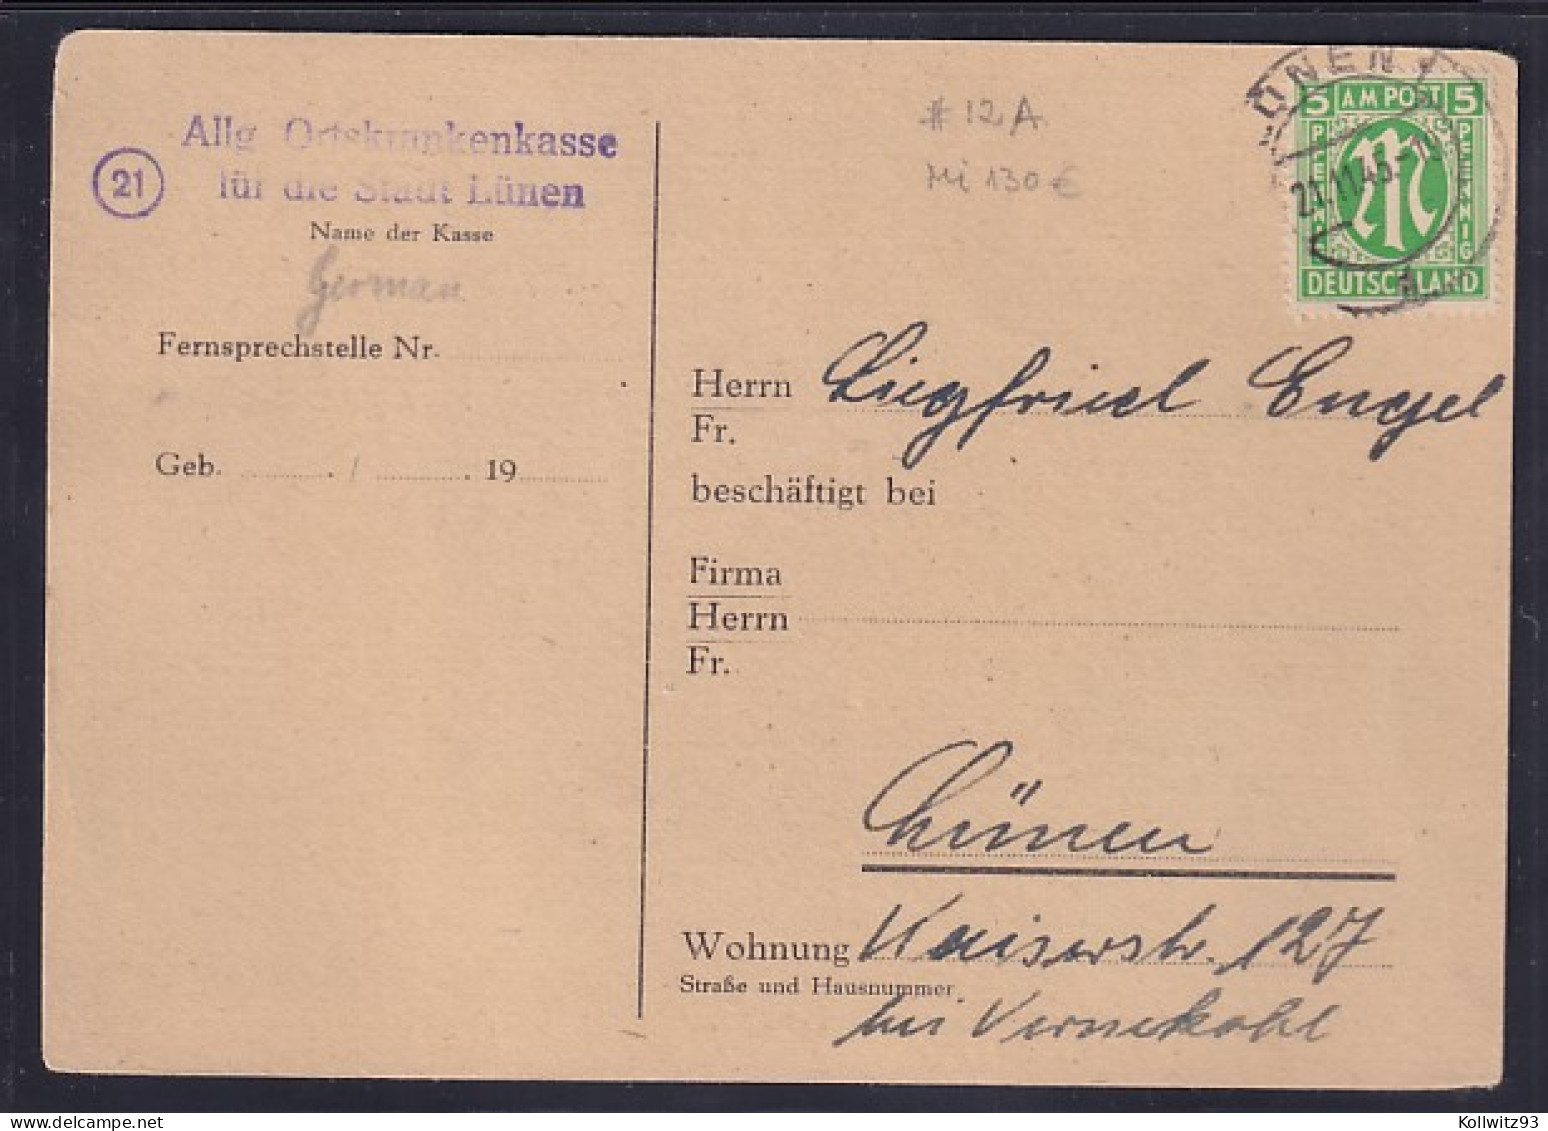 Allg. Ortskrankenkasse
für die Stadt Lünen
21
Name der Kasse
German
Fernsprechstelle Nr.
Geb. / . 19
# 12A
Mi 130€
ÜNEN
21.11.45
5 AM POST 5
PFENNIG
PFENNIG
DEUTSCHLAND
Herrn Siegfried Engel
Fr.
beschäftigt bei
Firma
Herrn
Fr.
Lünen
Wohnung Kaiserstr. 127
Straße und Hausnummer
bei Vernekohl
Kollwitz93